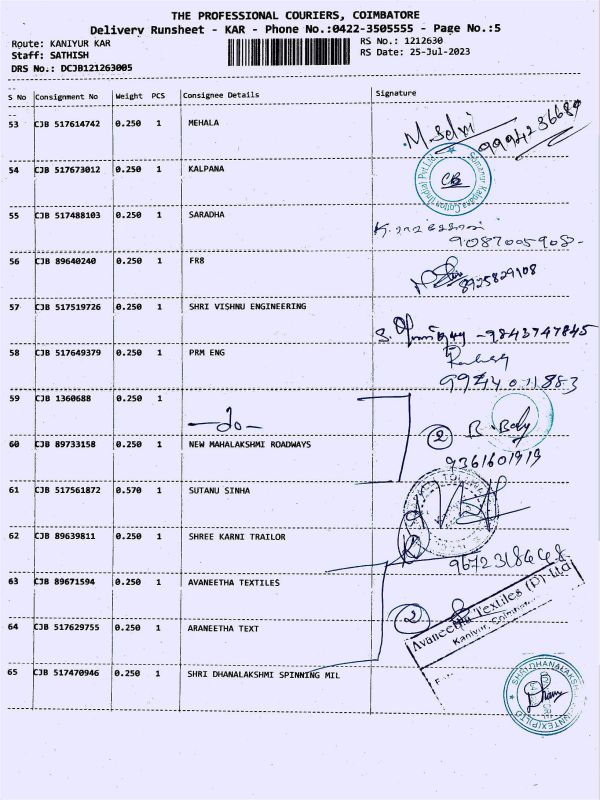 THE PROFESSIONAL COURIERS, COIMBATORE
Delivery Runsheet - KAR - Phone No.:0422-3505555 - Page No.:5
Route: KANIYUR KAR RS No.: 1212630
Staff: SATHISH RS Date: 25-Jul-2023
DRS No.: DCJB121263005
S No Consignment No Weight PCS Consignee Details Signature
53 CJB 517614742 0.250 1 MEHALA M. Selvi 9994236689
54 CJB 517673012 0.250 1 KALPANA
55 CJB 517488103 0.250 1 SARADHA
9087005908-
56 CJB 89640240 0.250 1 FR8 8925829108
57 CJB 517519726 0.250 1 SHRI VISHNU ENGINEERING
-9843747845
58 CJB 517649379 0.250 1 PRM ENG
9944011883
59 CJB 1360688 0.250 1
-do-
60 CJB 89733158 0.250 1 NEW MAHALAKSHMI ROADWAYS 2
9361601919
61 CJB 517561872 0.570 1 SUTANU SINHA
62 CJB 89639811 0.250 1 SHREE KARNI TRAILOR
63 CJB 89671594 0.250 1 AVANEETHA TEXTILES
Avaneetha Textiles (P) Ltd
64 CJB 517629755 0.250 1 ARANEETHA TEXT 2
65 CJB 517470946 0.250 1 SHRI DHANALAKSHMI SPINNING MIL